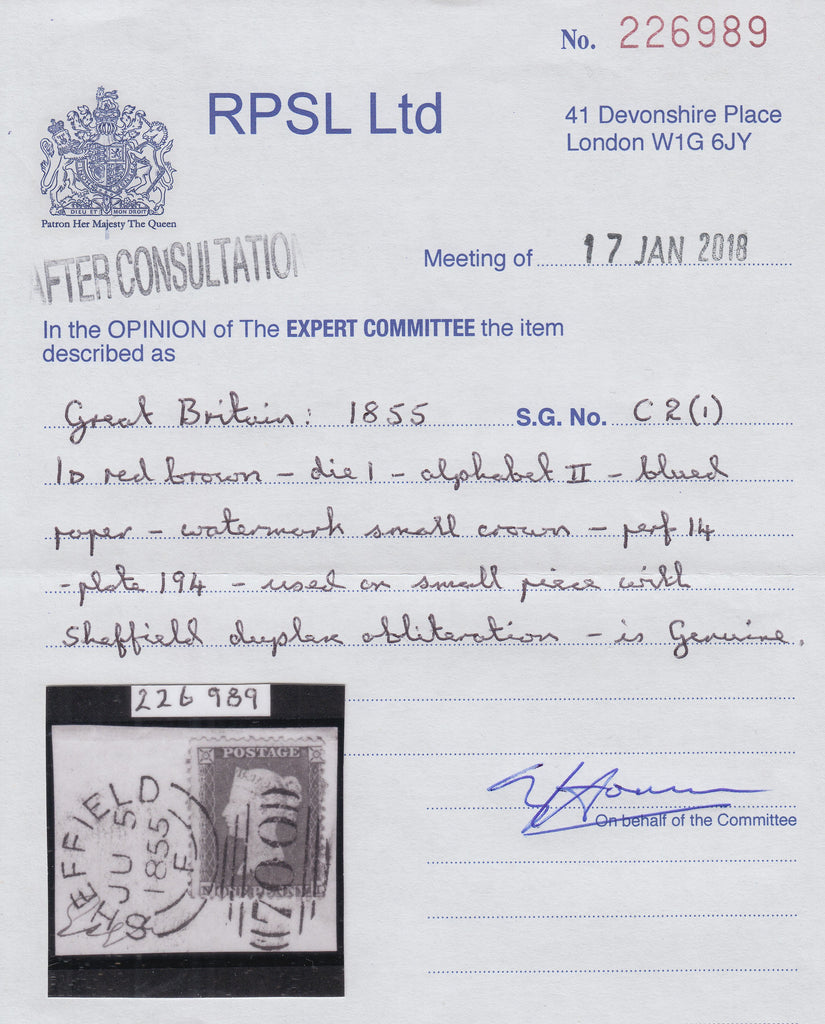 No. 226989
RPSL Ltd
41 Devonshire Place
London W1G 6JY
DIEU ET MON DROIT
Patron Her Majesty The Queen
AFTER CONSULTATION
Meeting of 17 JAN 2018
In the OPINION of The EXPERT COMMITTEE the item
described as
Great Britain: 1855 S.G. No. C2(1)
1D red brown – die 1 – alphabet II – blued
paper – watermark small crown – perf 14
– plate 194 – used on small piece with
Sheffield duplex obliteration – is Genuine.
226 989
POSTAGE
SHEFFIELD
JU 5
1855
F
700
ONE PENNY
On behalf of the Committee